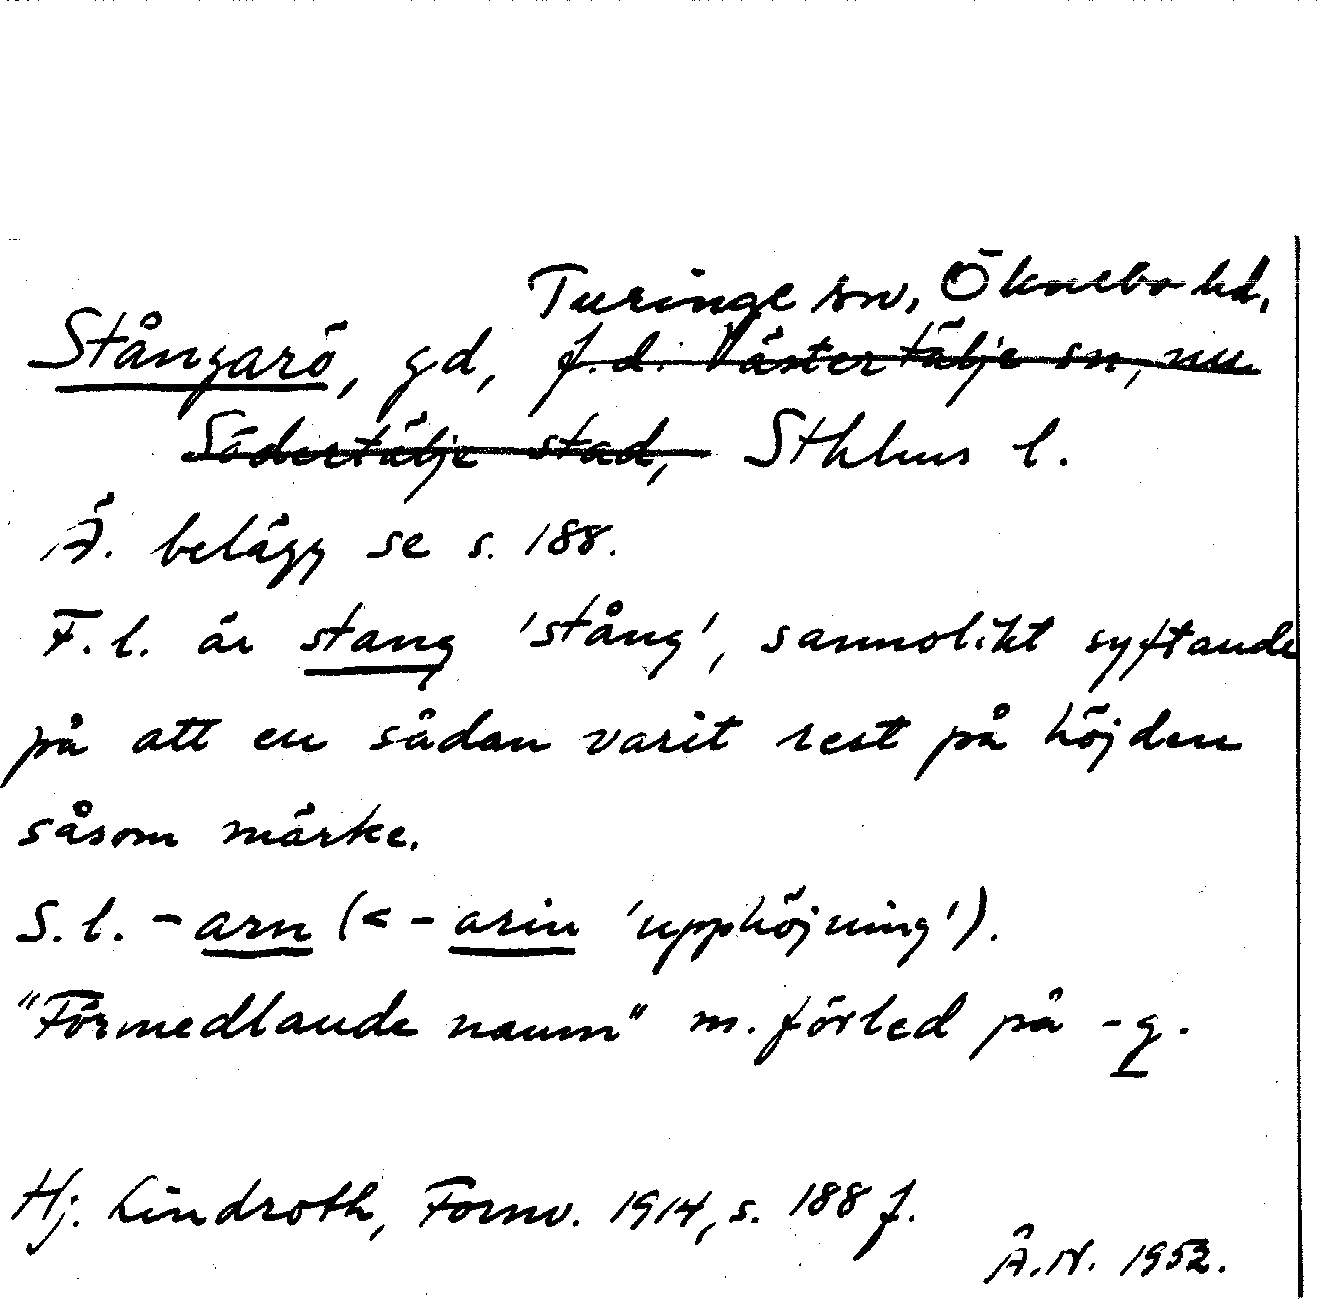 Turinge sn, Öknebo hd,
Stångarö, gd, f.d. Västertälje sn, nu
Södertälje stad, Sthlms l.
Ä. belägg se s. 188.
F.l. är stang 'stång', sannolikt syftande
på att en sådan varit rest på höjden
såsom märke.
S.l. -arn (< -arin 'upphöjning').
"Förmedlande namn" m. förled på -g.
Hj. Lindroth, Fornv. 1914, s. 188 f.
Å.N. 1952.